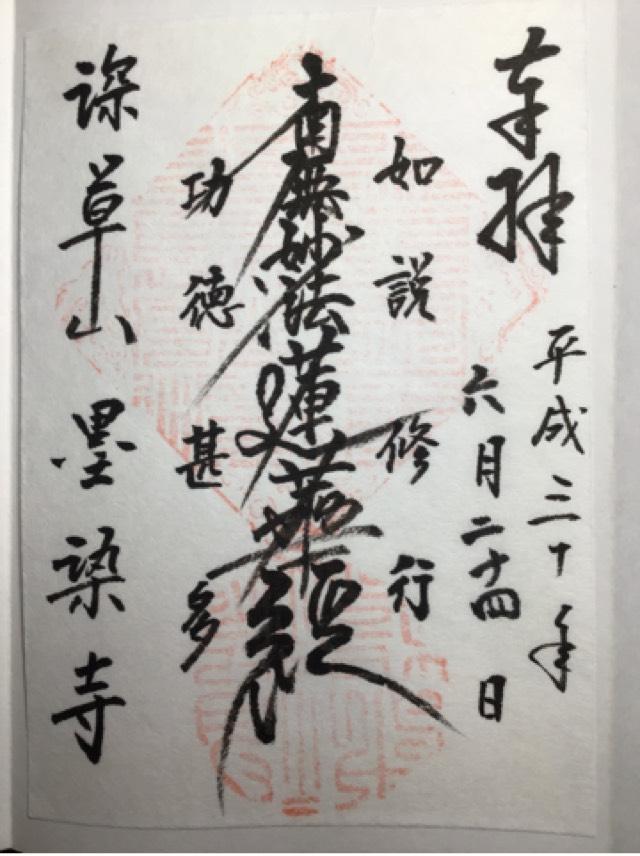 奉拝
平成三十年
六月二十四日
如説修行
南無妙法蓮華経
功徳甚多
深草山 墨染寺